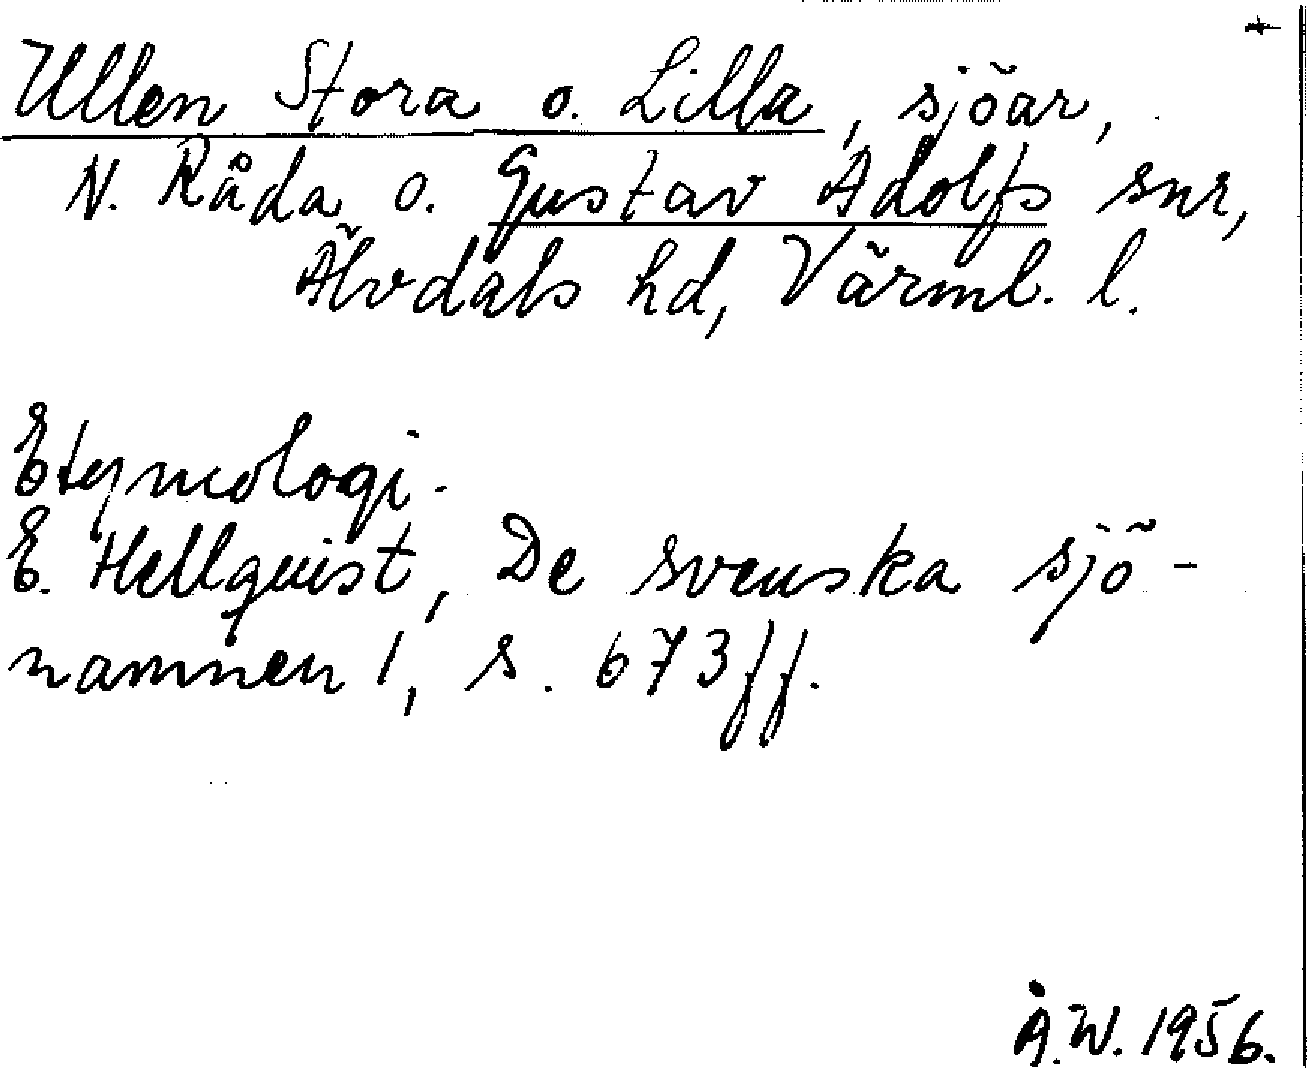 Ullen Stora o. Lilla, sjöar,
N. Råda o. Gustav Adolfs snr,
Älvdals hd, Värml. l.
Etymologi.
E. Hellquist, De svenska sjö-
namnen 1, s. 673 ff.
Å.W. 1956.